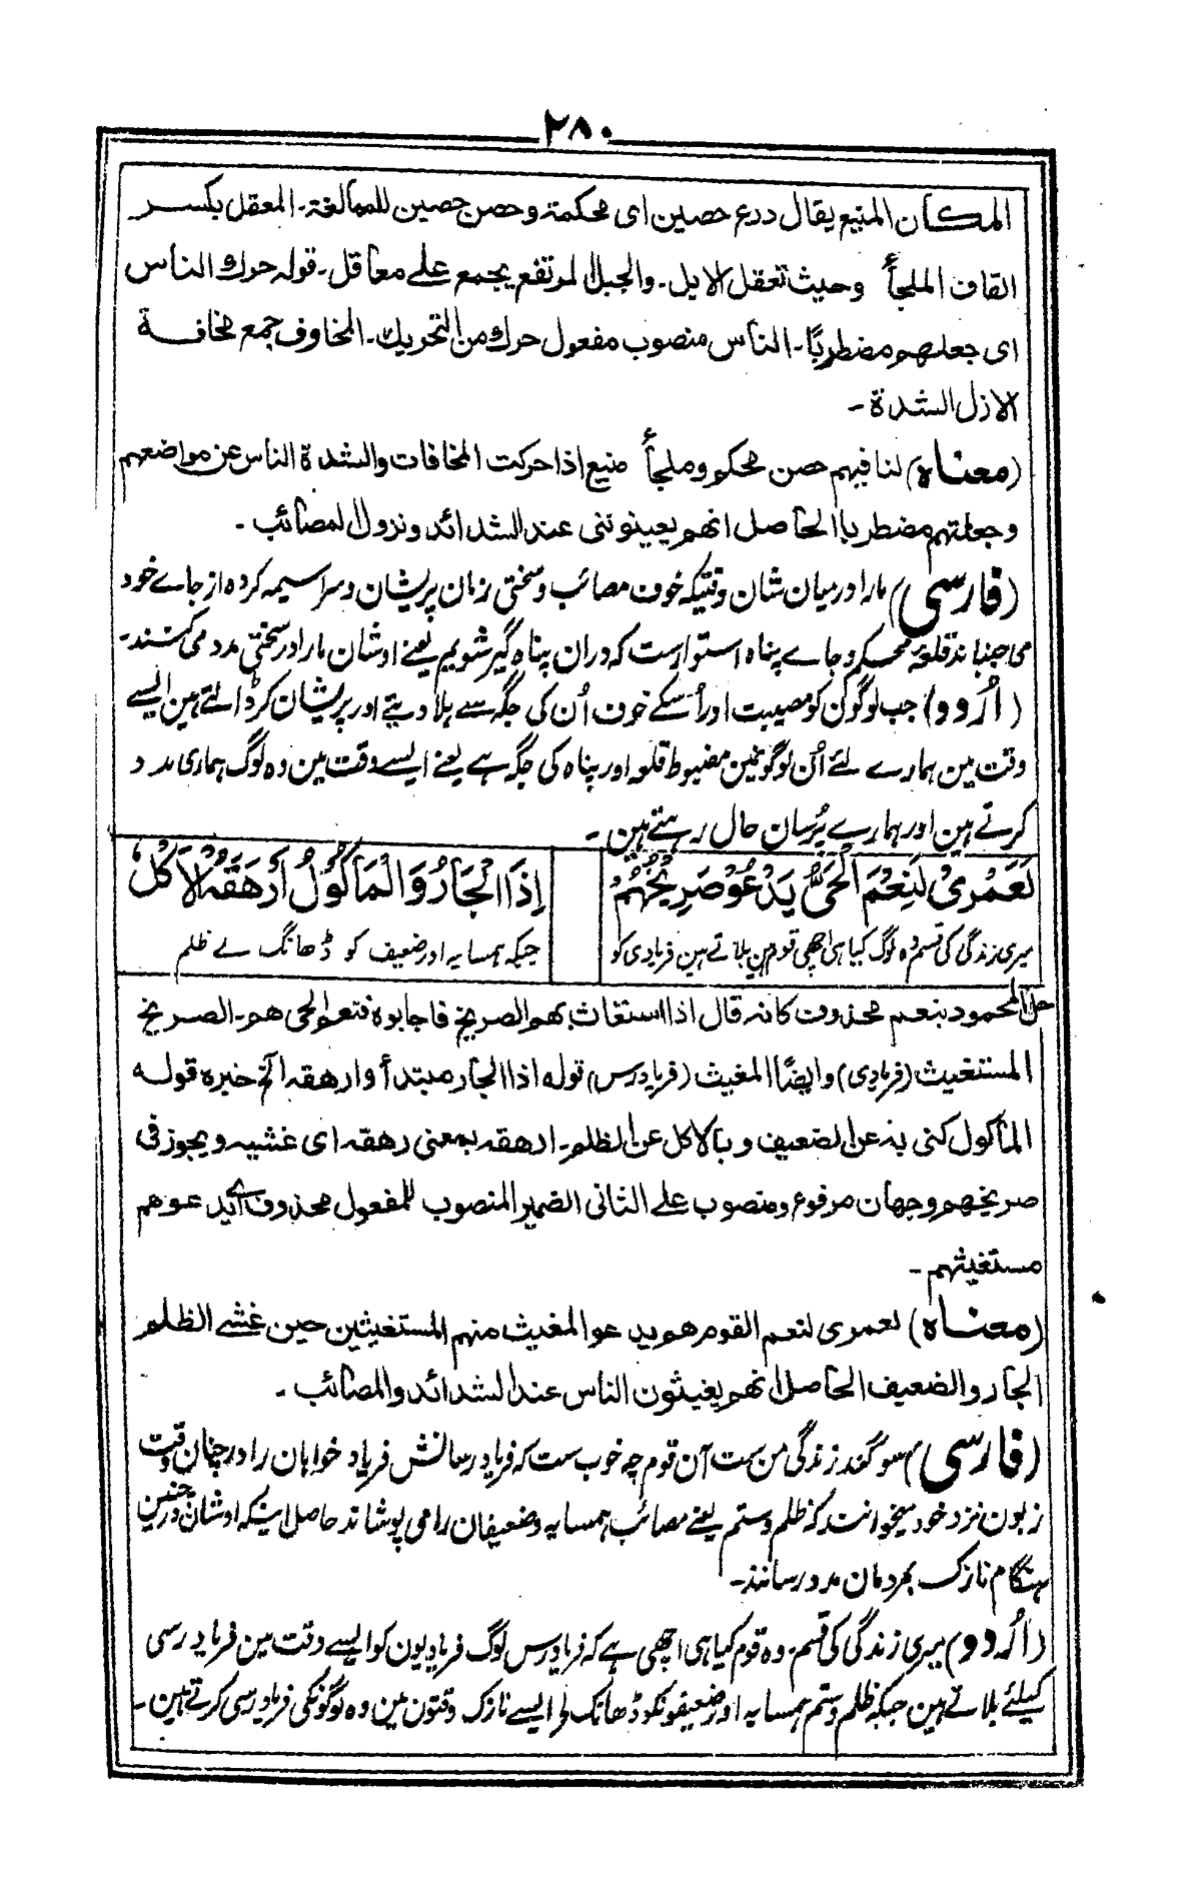 ۲۸۰
المکان المنیع یقال درع حصین ای محکمة وحصن حصین للمبالغة۔ المعقل بکسر
القاف الملجأ وحیث تعقل الابل۔ والجبل المرتفع یجمع علی معاقل۔ قوله حرك الناس
ای جعلهم مضطربًا۔ الناس منصوب مفعول حرك من التحریك۔ المخاوف جمع مخافة
الازل الشدة۔
(معناه) لنا فیهم حصن محکم وملجأ منیع اذا حرکت المخافات والشدة الناس عن مواضعهم
وجعلتهم مضطربا الحاصل انهم یعینوننی عند الشدائد ونزول المصائب۔
(فارسی) مارا درمیان شان وقتیکه خوف مصائب وسختی زمان پریشان وسراسیمه کرده از جاے خود
می جنباند قلعۂ محکم وجاے پناه استوارست که دران پناه گیر شویم یعنے اوشان مارا در سختی مدد می کنند۔
(اُردو) جب لوگون کو مصیبت اور اُسکے خوف اُن کی جگہ سے ہلا دیتے اور پریشان کر ڈالتے ہین ایسے
وقت مین ہمارے لئے اُن لوگونمین مضبوط قلعہ اور پناہ کی جگہ ہے یعنے ایسے وقت مین وہ لوگ ہماری مدد
کرتے ہین اور ہمارے پُرسان حال رہتے ہین۔
لَعَمْرِیْ لَنِعْمَ الْحَیُّ یَدْعُوْ صَرِیْخُهُمْ
اِذَا الْجَارُ وَالْمَأْکُوْلُ اَرْهَقَهُ الْاَکْلُ
میری زندگی کی قسم وہ لوگ کیا ہی اچھی قوم ہین بلاتے ہین فریادی کو
جبکہ ہمسایہ اور ضعیف کو ڈھانگ لے ظلم
حل المحمود بنعم محذوف کانه قال اذا استغاث بهم الصریخ فاجابوه فنعم الحی هم۔ الصریخ
المستغیث (فریادی) وایضًا المغیث (فریادرس) قوله اذا الجار مبتدأ وارهقه الخ خبره قوله
المأکول کنی به عن الضعیف وبالاکل عن الظلم۔ ارهقه بمعنی رهقه ای غشیه ویجوز فی
صریخهم وجهان مرفوع ومنصوب علی الثانی الضمیر المنصوب للمفعول محذوف ای یدعوهم
مستغیثهم۔
(معناه) لعمری لنعم القوم هم یدعو المغیث منهم المستغیثین حین غشے الظلم
الجار والضعیف الحاصل انهم یغیثون الناس عند الشدائد والمصائب۔
(فارسی) سوگند زندگی من ست آن قوم چه خوب ست که فریاد رسانش فریاد خواهان را در چنان وقت
زبون نزد خود میخوانند که ظلم وستم یعنے مصائب همسایه وضعیفان را می پوشاند حاصل اینکه اوشان در چنین
هنگام نازک بمردمان مدد رسانند۔
(اُردو) میری زندگی کی قسم۔ وہ قوم کیا ہی اچھی ہے کہ فریاد رس لوگ فریادیون کو ایسے وقت مین فریاد رسی
کیلئے بلاتے ہین جبکہ ظلم وستم ہمسایہ اور ضعیفونکو ڈھانک لے ایسے نازک وقتون مین وہ لوگونکی فریاد رسی کرتے ہین۔